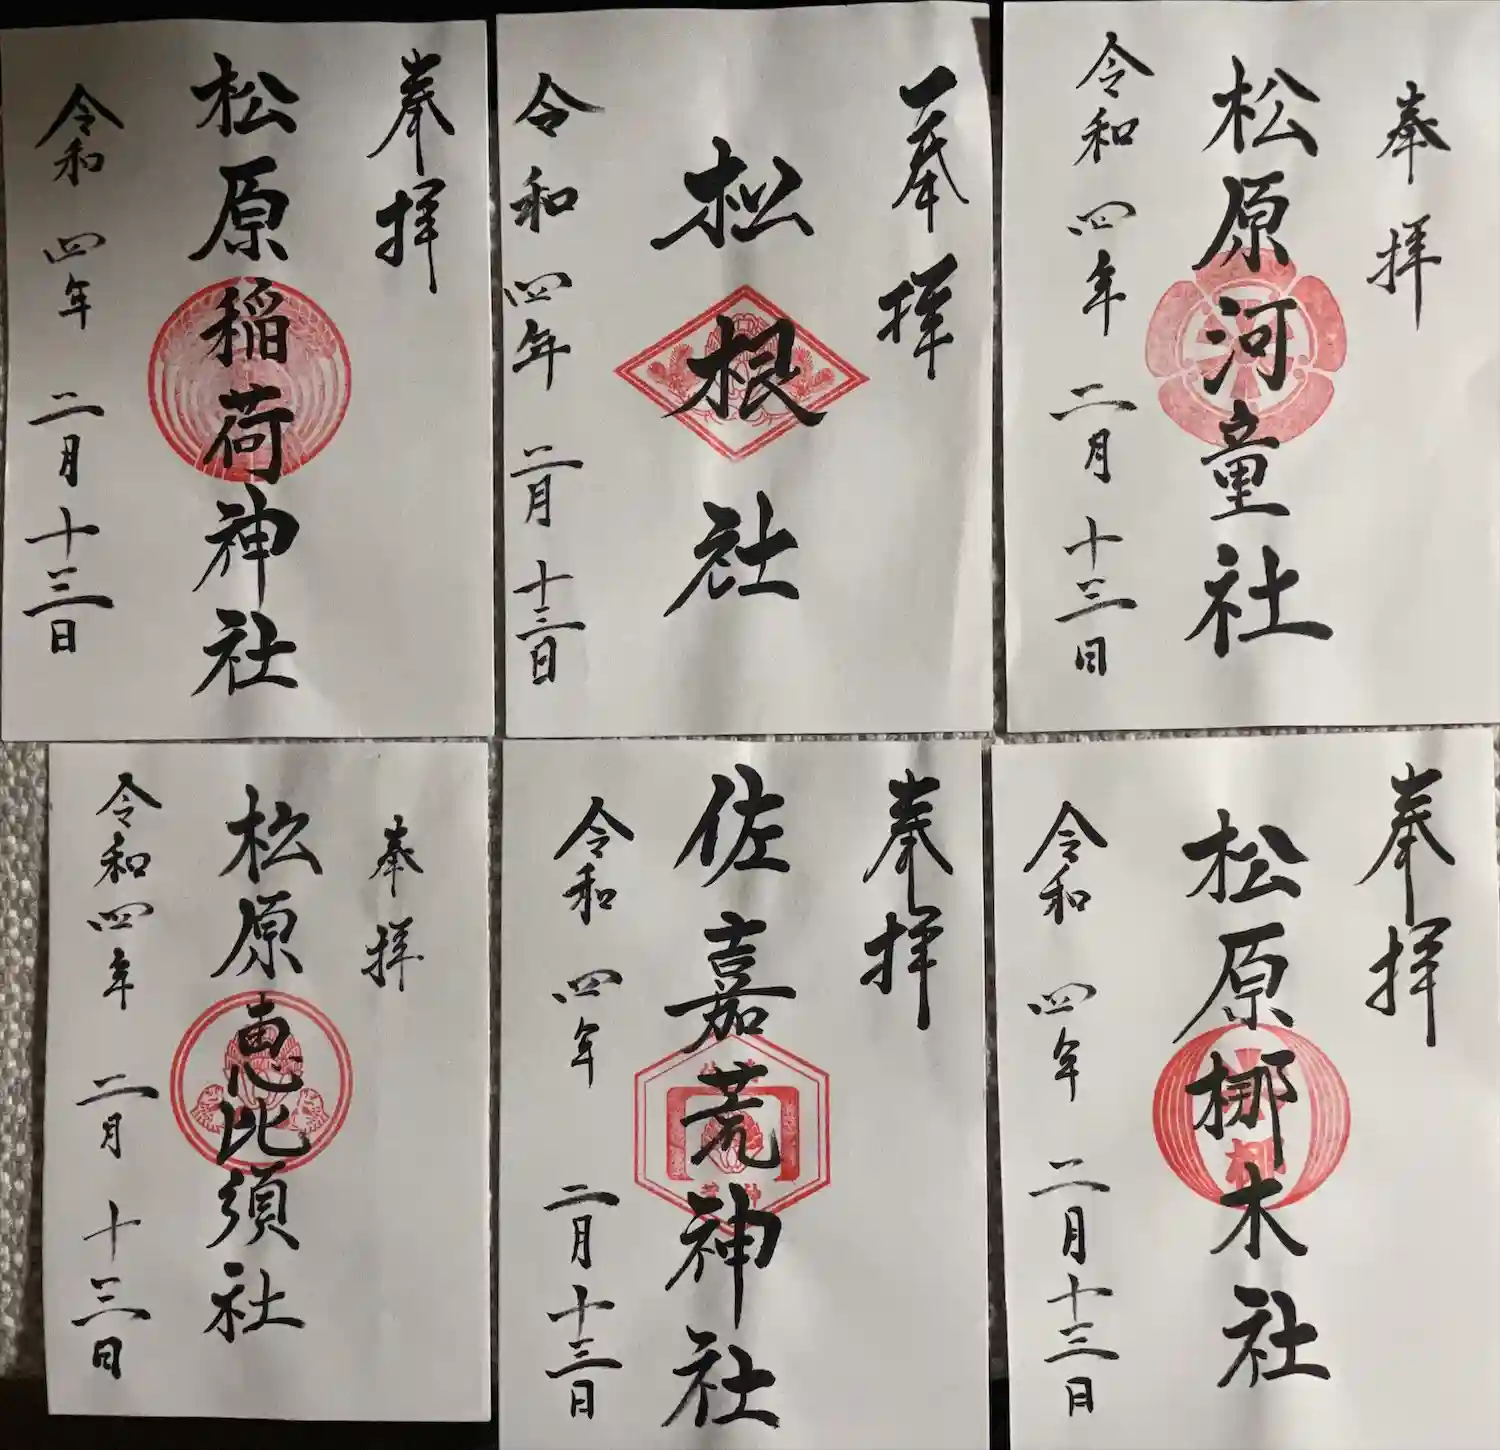 奉拝
松原稲荷神社
令和四年二月十三日
奉拝
松根社
令和四年二月十三日
奉拝
松原河童社
令和四年二月十三日
奉拝
松原恵比須社
令和四年二月十三日
奉拝
佐嘉荒神社
令和四年二月十三日
奉拝
松原梛木社
令和四年二月十三日